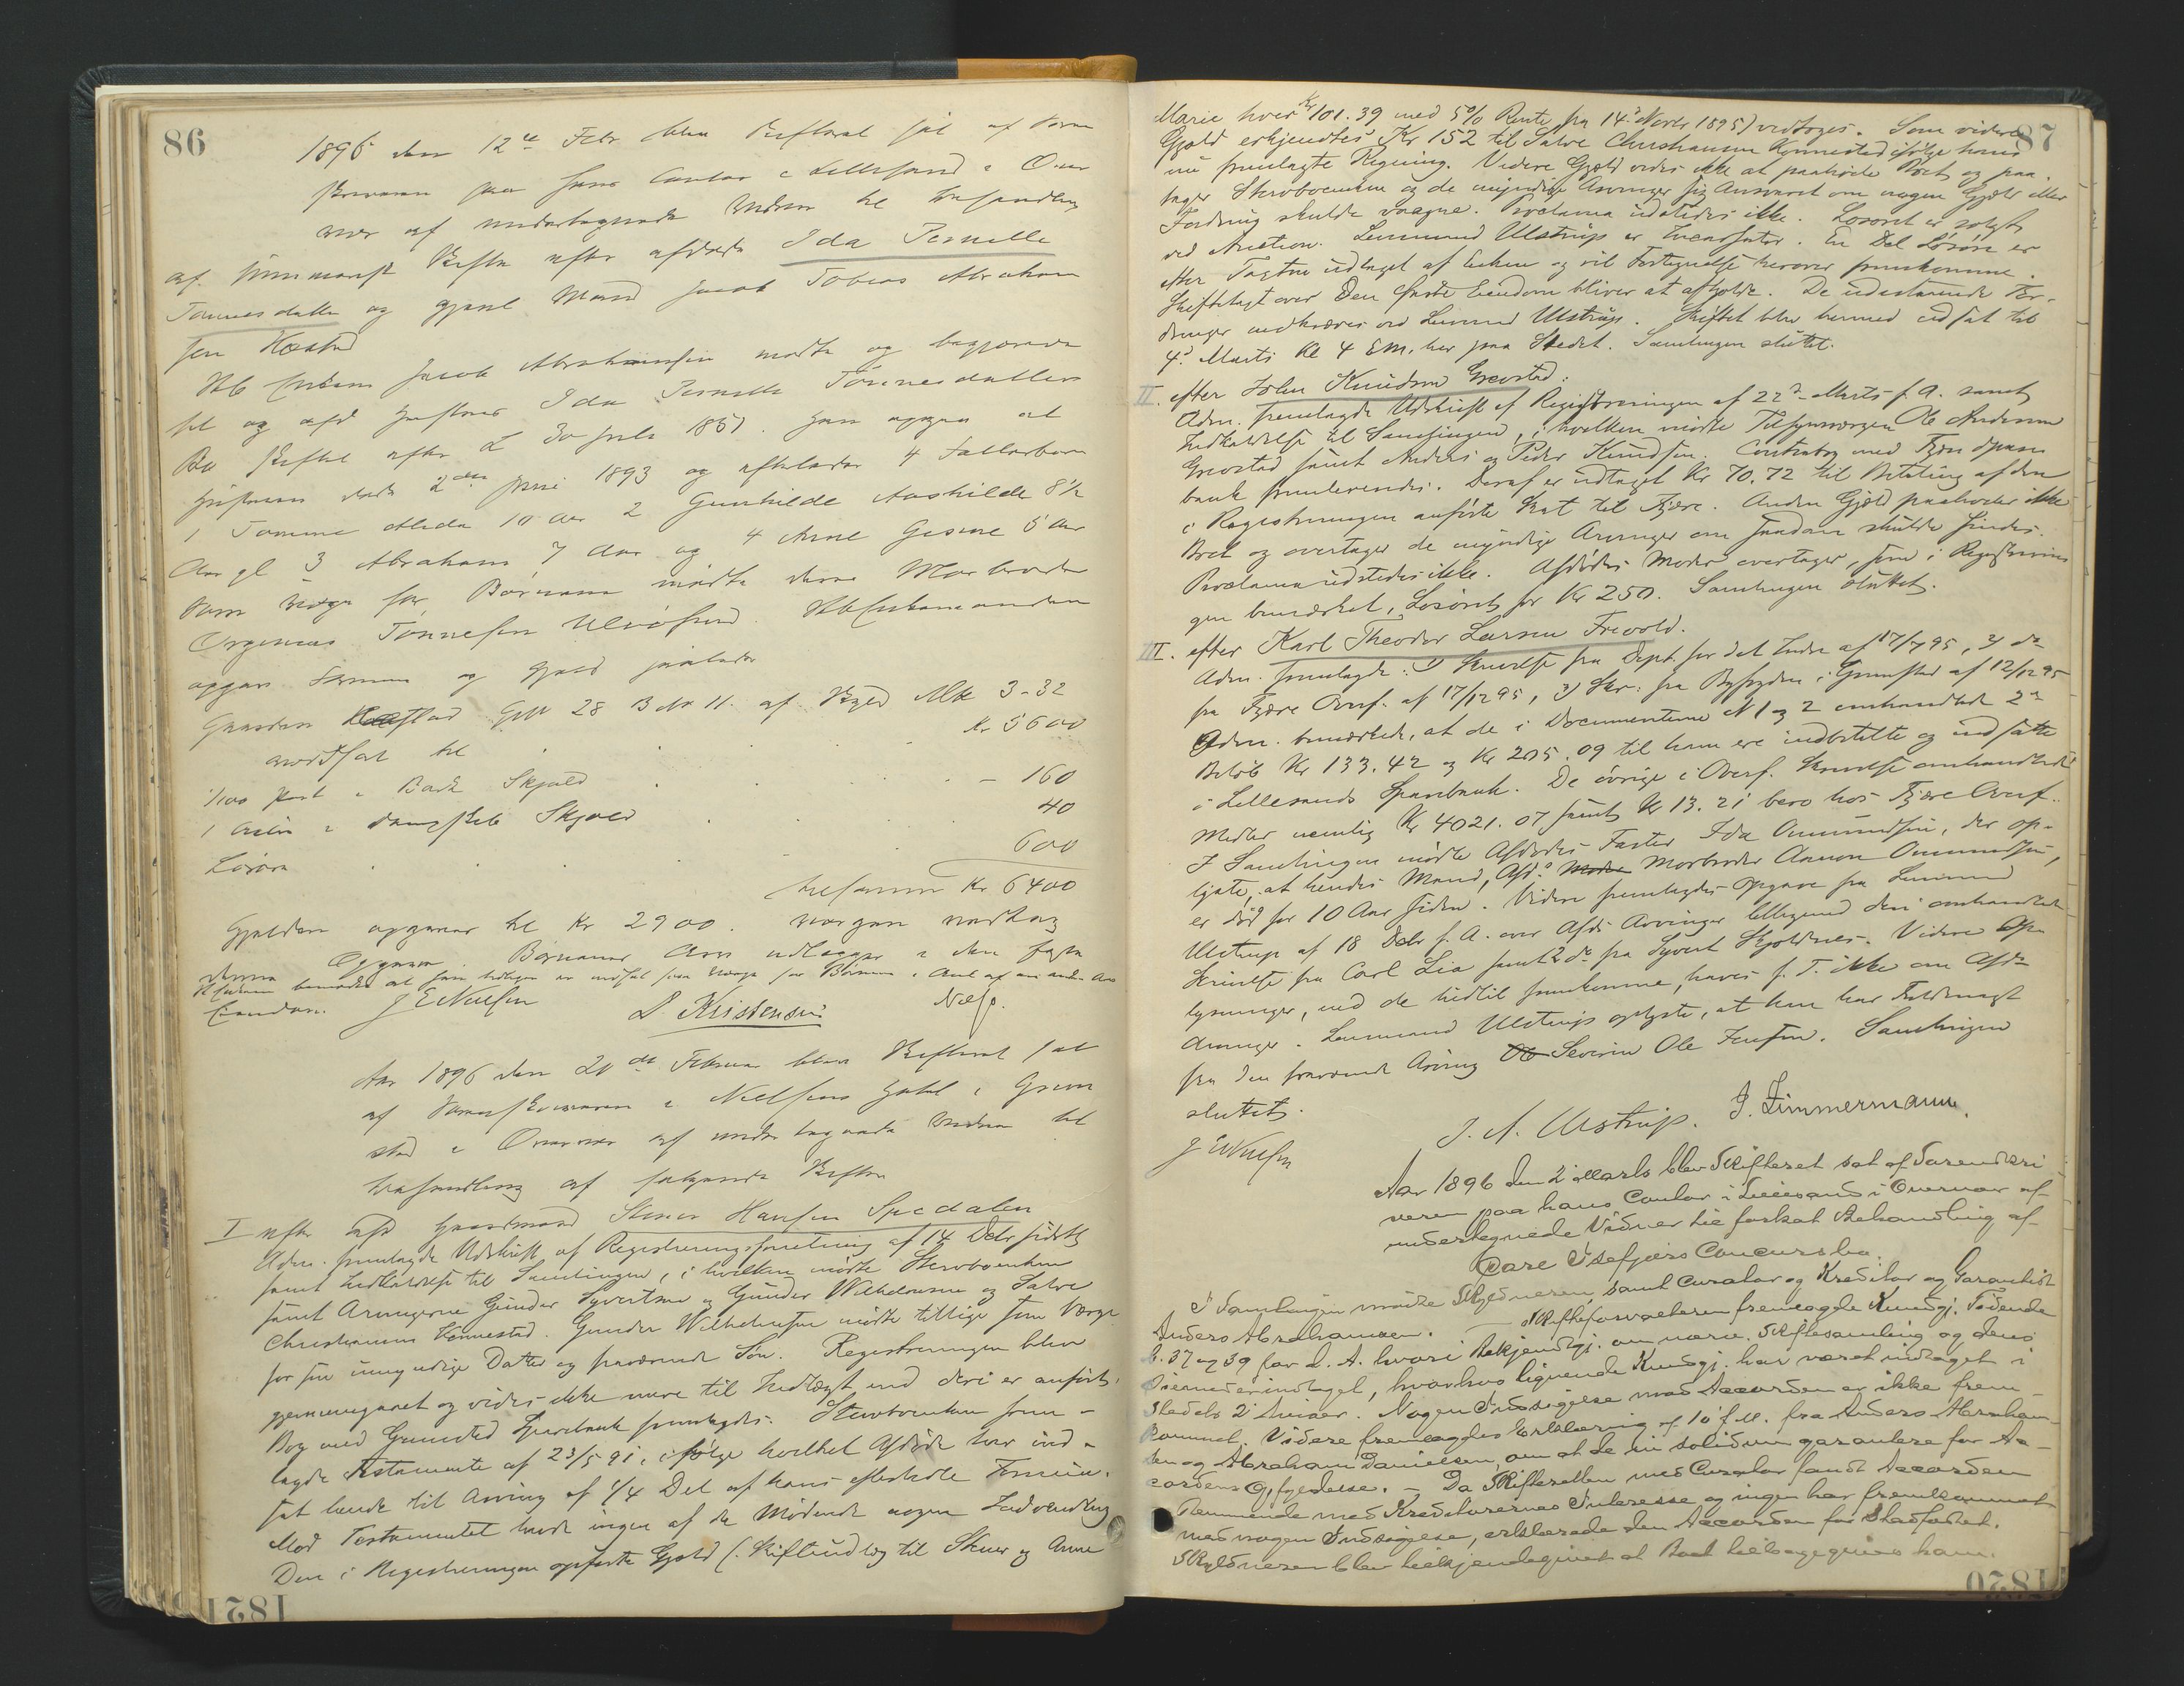 86
1896 den 12te Febr blev Skifteret sat af Soren
skriveren paa hans Contor i Lillesand i Over
vær af undertegnede Vidner til Behandling
af Summarisk Skifte efter afdøde Ida Pernille
Tønnesdatter og gjenl Mand Jacob Tobias Abraham
sen Kæstad
Enkem Jacob Abrahamsen mødte og begjærede
sit og afd Hustrues Ida Pernille Tønnesdatters
Bo skiftet efter L 30 Juli 1851. Han opgav at
Hustruen døde 2den Juni 1893 og efterlader 4 Fællesbørn
1 Tomine Alida 10 Aar 2 Gunhilde Aashilde 8½
Aar gl 3 Abraham 7 Aar og 4 Anne Gesine 5 Aar
Som Værge for Børnene mødte deres Morbroder
Orgenius Tønnesen Ulvøsund.
opgav Formue og Gjæld saaledes
Gaarden Kæstad GN 28 B No 11 af Skyld Mk 3-32
værdsat til . . . Kr 5600
1/100 Part i Bark Skjold . . . - 160
1 Actie i Dampskib Skjold . . . 40
Løsøre . . . 600
tilsammen Kr 6400
Gjælden opgaves til Kr 2900. Værgen vedtog
denne Opgave. Børnenes Arv udlægges i den faste
Eiendom.
J E Nielsen
L Kristensen
Aar 1896 den 20de Februar blev Skifteret sat
af Sorenskriveren i Nielsens Hotel i Grim
stad i Overvær af undertegnede Vidner til
Behandling af følgende Skifter
I efter afd Gaardmand Stener Hansen Spedalen
Adm. fremlagde Udskrift af Registreringsforretning af 14 Decbr sidstl
samt Indkaldelse til Samlingen, i hvilken mødte Stervboenken
samt Arvingerne Gunder Syvertsen og Gunder Wilhelmsen og Salve
Christiansen Konnestad. Gunder Wilhelmsen mødte tillige som Værge
for sin umyndige Datter og fraværende Søn. Registreringen blev
gjennemgaaet og vides ikke mere til Indtægt end deri er anført.
Bog med Grimstad Sparebank fremlagdes. Stervboenken frem-
lagde Testamente af 23/5 91, ifølge hvilket Afdøde har ind-
sat hende til Arving af 1/4 Del af hans efterladte Formue.
Mod Testamentet havde ingen af de Mødende nogen Indvending
Den i Registreringen opførte Gjæld (: Skifteudlæg til Stener og Anne
87
Marie hver Kr 101.39 med 5% Rente fra 14d Novbr 1895) vedtoges. Som videre
Gjæld erkjendtes Kr 152 til Salve Christiansen Konnestad ifølge hans
nu fremlagte Regning. Videre Gjæld vides ikke at paahvile Boet og paa-
tager Stervboenken og de myndige Arvinger sig Ansvaret om nogen Gjæld eller
Fordring skulde vaagne. Proclama udstedes ikke. Løsøret er solgt
ved Auction. Lensmand Ulstrup er Incassator. En Del Løsøre er
efter Taxten udtaget af Enken og vil Fortegnelse herover fremkomme.
Skiftetaxt over Den faste Eiendom bliver at afholde. De udestaaende For-
dringer indkræves ved Lensmd Ulstrup. Skiftet blev hermed udsat til
4d Marts Kl 4 EM. her paa Stedet. Samlingen sluttet.
II. efter John Knudsen Grevstad:
Adm. fremlagde Udskrift af Registreringen af 22d Marts f. A. samt
Indkaldelse til Samlingen, i hvilken mødte Tilsynsværgen Ole Andersen
Grevstad samt Anders og Peder Knudsen. Contrabog med Fjære Spare
bank fremleveredes. Deraf er udtaget Kr 70.72 til Betaling af den
i Registreringen anførte Skat til Fjære. Anden Gjæld paahviler ikke
Boet og overtager de myndige Arvinger om saadan skulde findes.
Proclama udstedes ikke. Afdødes Moder overtager, som i Registrerin
gen bemærket, Løsøret for Kr 250. Samlingen sluttet.
III. efter Karl Theodor Larsen Frivold.
Adm. fremlagde: 1) Skrivelse fra Dept. for det Indre af 17/7 95, 2) do
fra Fjære Overf. af 17/12 95, 3) Skr. fra Byfogden i Grimstad af 12/12 95
Adm. bemærkede, at de i Documenterne N 1 og 2 omhandlede 2de
Beløb Kr 133.42 og Kr 205.09 til ham ere indbetalte og indsatte
i Lillesands Sparebank. De øvrige i Overf. Skrivelse omhandlede
Midler nemlig Kr 4021.07 samt Kr 13.21 bero hos Fjære Overf.
I Samlingen mødte Afdødes Faster Ida Omundsen, der op-
lyste, at hendes Mand, Afd.s Morbroder Aanon Omundsen,
er død for 10 Aar siden. Videre fremlagdes Opgave fra Lensmd
Ulstrup af 18 Decbr f. A. over Afds Arvinger tilligemed den omhandlede
Skrivelse fra Carl Lia samt 2 do fra Syvert Skjoldnes. Videre Op-
lysninger, end de hidtil fremkomne, haves p. T. ikke om Afds
Arvinger. Lensmand Ulstrup oplyste, at han har Fuldmagt
fra den fraværende Arving Severin Ole Jensen. Samlingen
sluttet.
J. A. Ulstrup. J. Zimmermann.
J E Nielsen
Aar 1896 den 2 Marts blev Skifteret sat af Sorenskri
veren paa hans Contor i Lillesand i Overvær af
undertegnede Vidner til fortsat Behandling af
Ole Isefjærs Concursbo.
I Samlingen mødte Skyldneren, samt Curator og Kreditor og Garantist
Anders Abrahamsen. — Skifteforvalteren fremlagde Kundgj. Tidende
N. 37 og 39 for d. A. hvori Bekjendtgj. om nærv. Skiftesamling og dens
Øiemed er indtaget, hvorhos lignende Kundgj. har været indtaget i
Stedets 2 Aviser. Nogen Indsigelse mod Accorden er ikke frem-
kommet. Videre fremlagdes Erklæring af 10 f.M. fra Anders Abraham-
sen og Abraham Danielsen, om at de in solidum garantere for Ac-
cordens Opfyldelse. — Da Skifteretten med Curator fandt Accorden
stemmende med Kreditorernes Interesse og ingen har fremkommet
med nogen Indsigelse, erklærede den Accorden for stadfæstet.
Skyldneren blev tilkjendegivet at Boet tilbagegives ham.